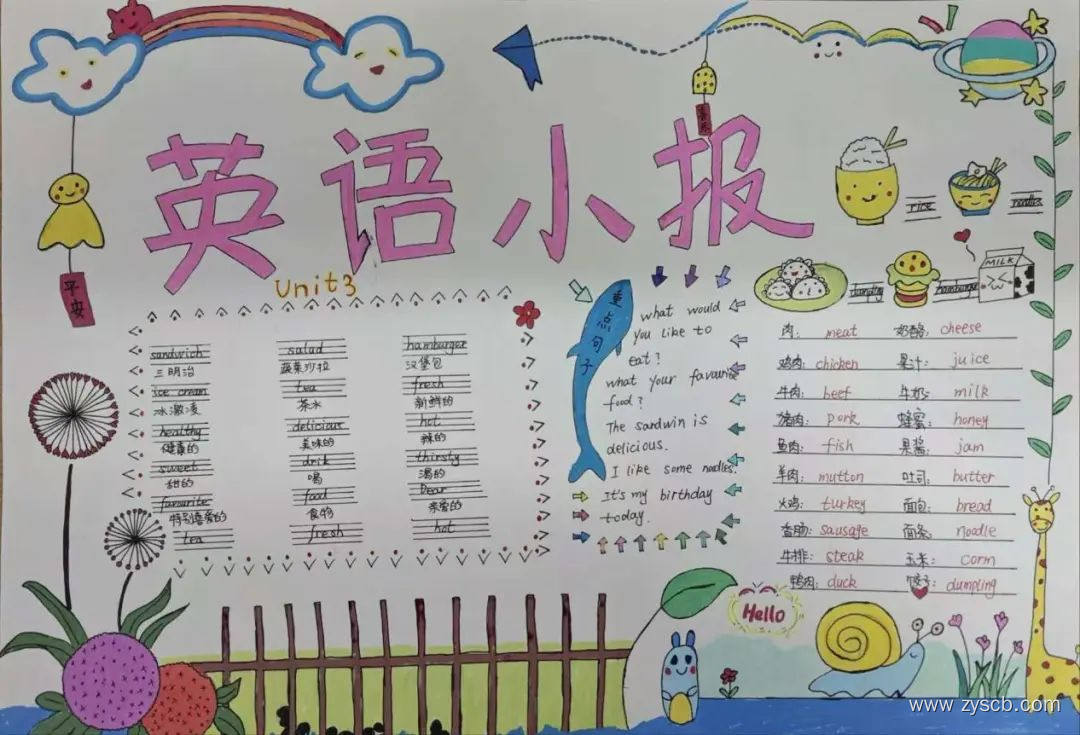 喜乐
英语小报
平安
Unit3
sandwich
三明治
ice cream
冰激凌
healthy
健康的
sweet
甜的
favourite
特别喜爱的
tea
salad
蔬菜沙拉
tea
茶水
delicious
美味的
drik
喝
food
食物
fresh
hamburger
汉堡包
fresh
新鲜的
hot
辣的
thirsty
渴的
Dear
亲爱的
hot
重点句子
what would
you like to
eat?
what your favourite
food?
The sandwin is
delicious.
I like some noodles.
It's my birthday
today.
rice
noodles
dumpling
hamburger
MILK
肉: meat 奶酪: cheese
鸡肉: chicken 果汁: juice
牛肉: beef 牛奶: milk
猪肉: pork 蜂蜜: honey
鱼肉: fish 果酱: jam
羊肉: mutton 吐司: butter
火鸡: turkey 面包: bread
香肠: sausage 面条: noodle
牛排: steak 玉米: corm
鸭肉: duck 饺子: dumpling
Hello
www.zyscb.com